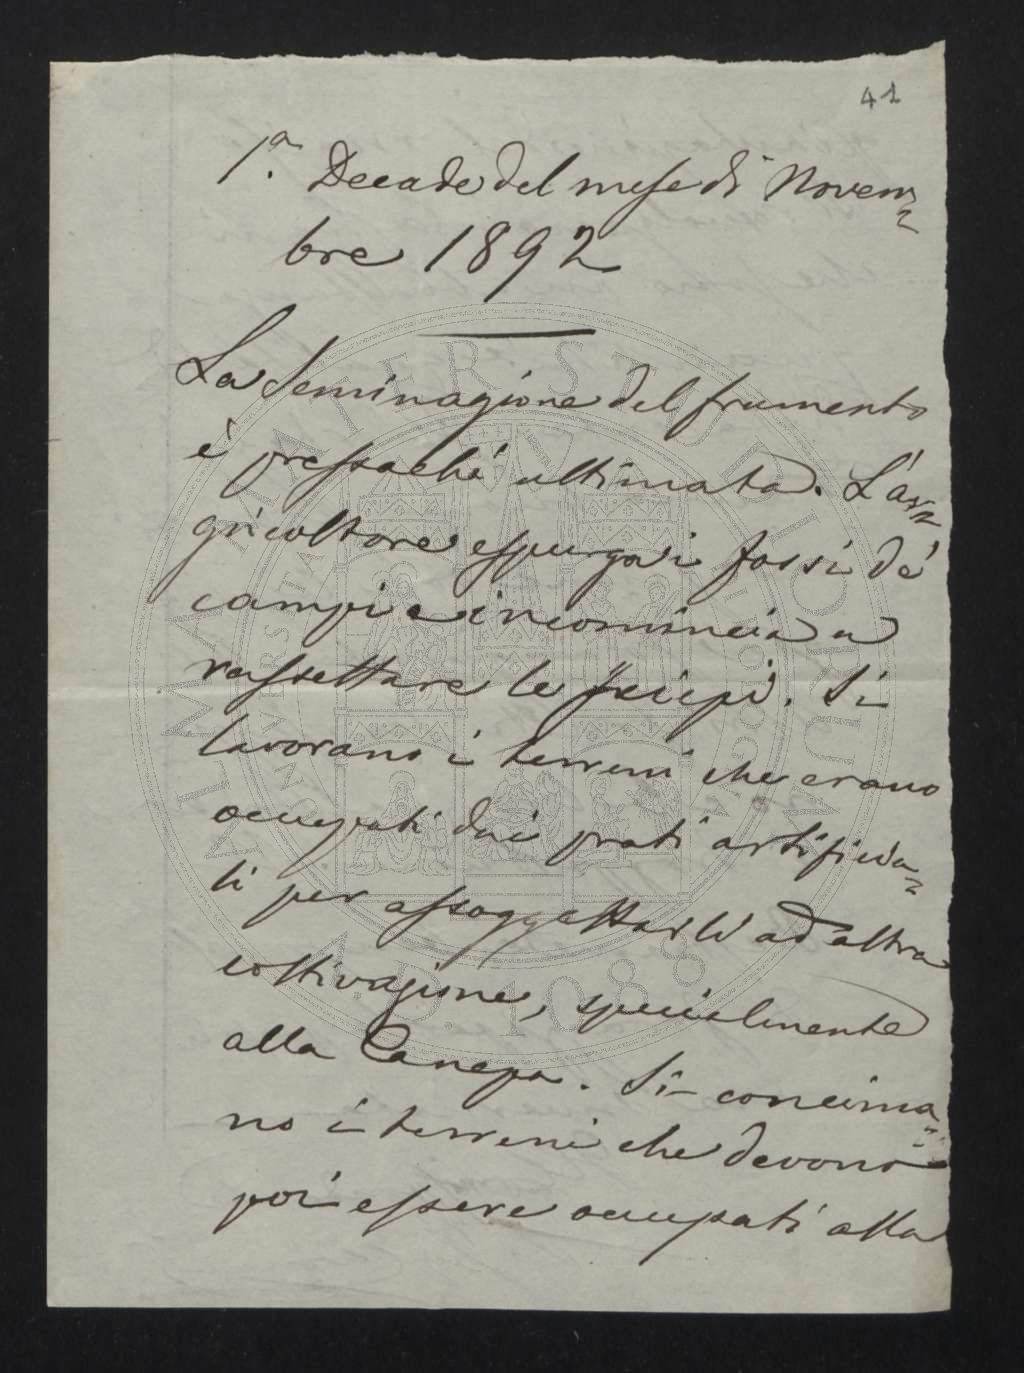 41
1.ª Decade del mese di Novem=
bre 1892
La Seminagione del frumento
è pressachè ultimata. L'a=
gricoltore espurga i fossi de'
campi e incomincia a
rassettare le siepi. Si
lavorano i terreni che erano
occupati dai prati artificia=
li per assoggettarli ad altra
coltivazione, specialmente
alla Canepa. Si concima=
no i terreni che devono
poi essere occupati alla
ALMA MATER STUDIORUM
A.D. 1088